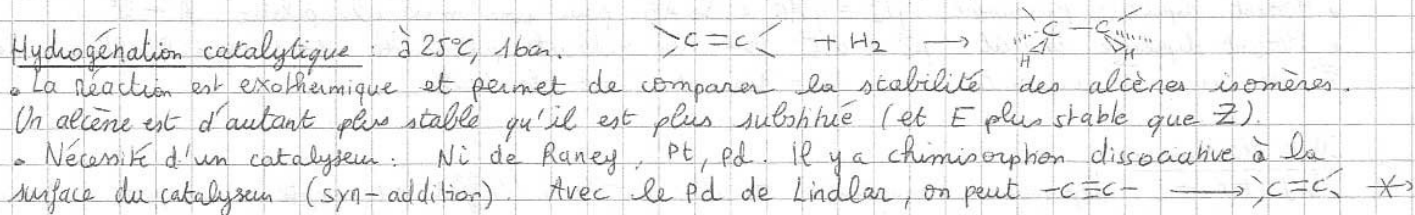 Hydrogénation catalytique : à 25°C, 1bar. >C=C< + H₂ → C-C H H
• La réaction est exothermique et permet de comparer la stabilité des alcènes isomères.
Un alcène est d'autant plus stable qu'il est plus substitué (et E plus stable que Z).
• Nécessité d'un catalyseur : Ni de Raney, Pt, Pd. Il y a chimisorption dissociative à la
surface du catalyseur (syn-addition). Avec le Pd de Lindlar, on peut -C≡C- → >C=C<